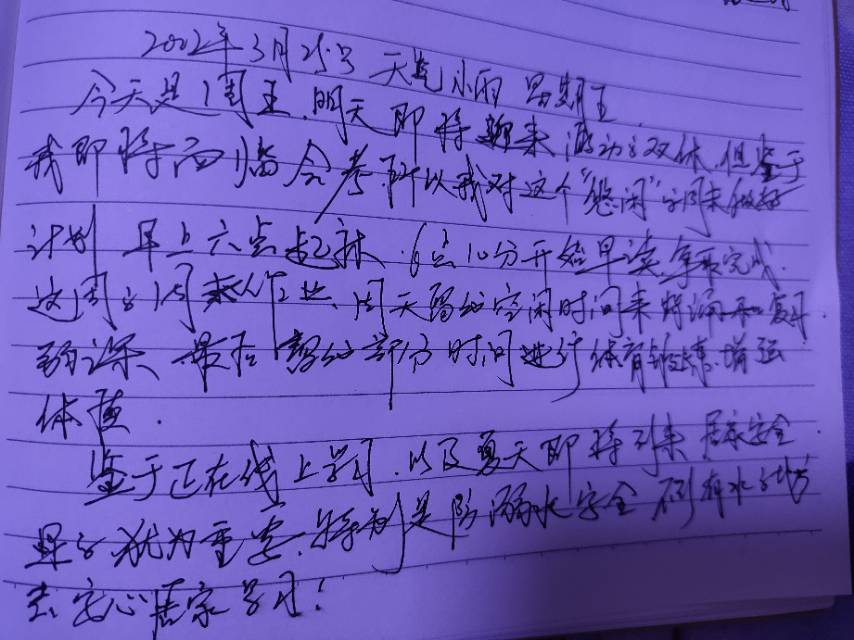 2022年3月25号 天气小雨 星期五
今天是周五.明天即将迎来激动的双休,但鉴于
我即将面临会考,所以我对这个"悠闲"的周末做好
计划 早上六点起床.6点10分开始早读.争取完成.
这周的周末作业、周天留的空闲时间来背诵和复习
课.最后 部分时间进行体育锻炼.增强
体质.
鉴于正在线上学习.以及夏天即将到来 居家安全.
显的犹为重要.特别是防溺水安全 不到有水的地方
去.安心居家学习!